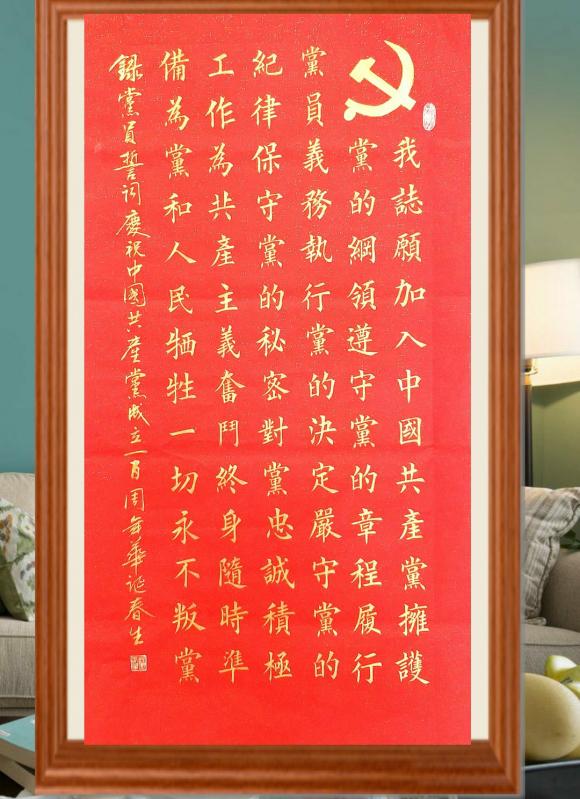 我誌願加入中國共產黨擁護
黨的綱領遵守黨的章程履行
黨員義務執行黨的決定嚴守黨的
紀律保守黨的秘密對黨忠誠積極
工作為共產主義奮鬥終身隨時準
備為黨和人民牺牲一切永不叛黨
錄黨員誓詞慶祝中國共產黨成立一百周年華诞春生